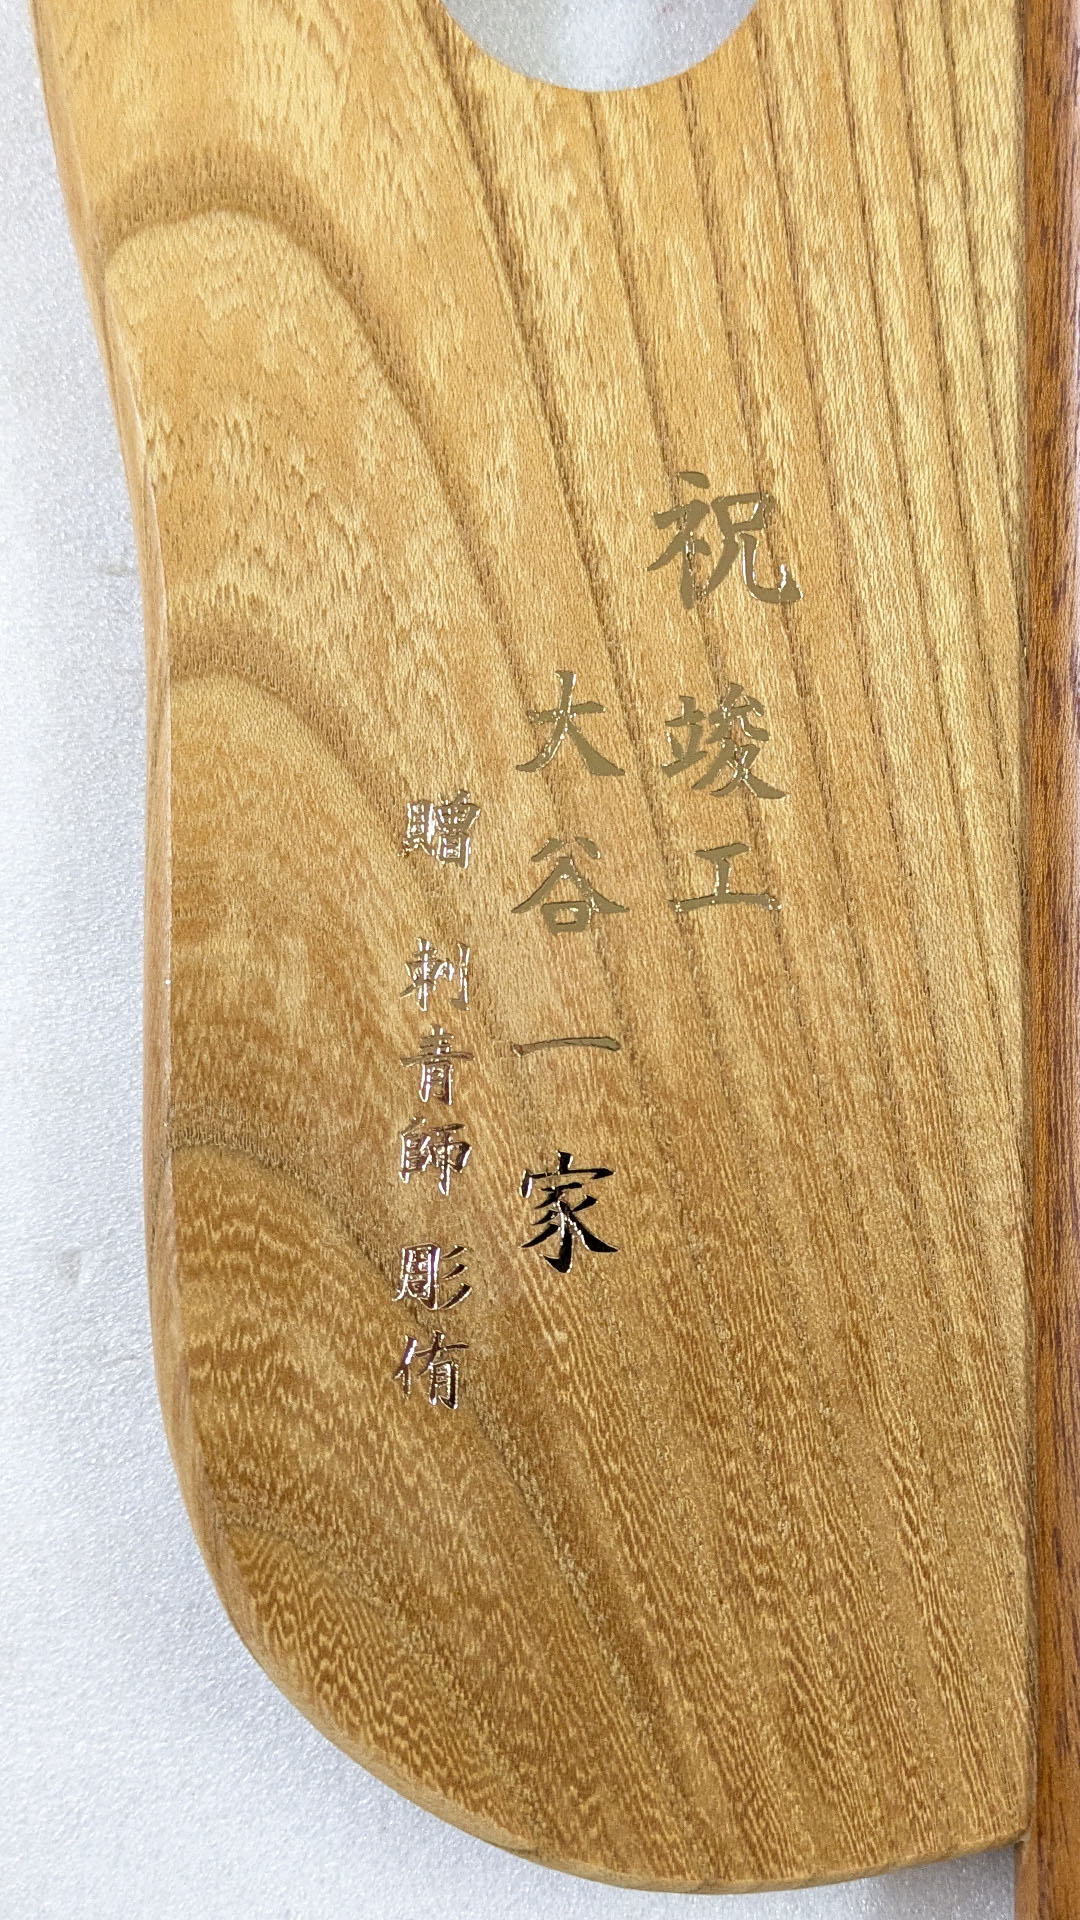 祝竣工
大谷一家
贈 刺青師 彫侑